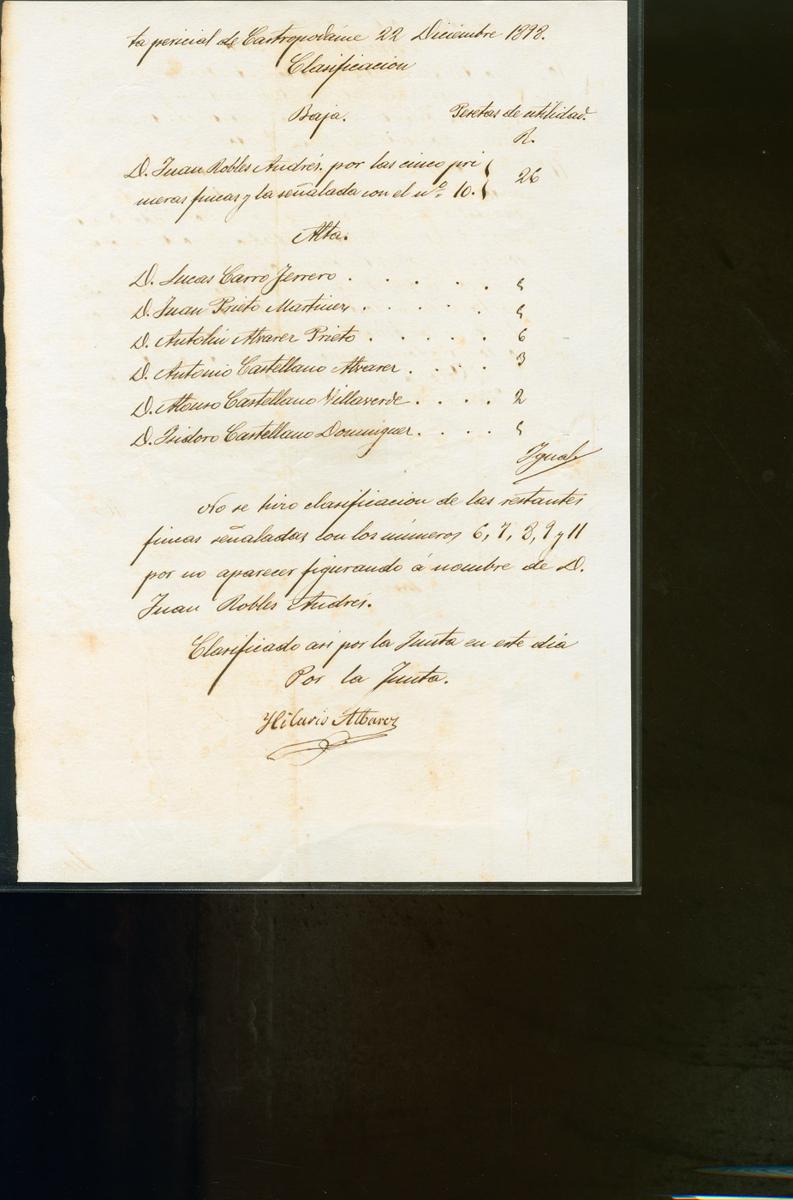 ta pericial de Castropodame 22 Diciembre 1898.
Clasificacion
Baja. Pesetas de utilidad.
R.
D. Juan Robles Andrés. por las cinco pri
meras fincas y la señalada con el nº 10. } 26
Alta.
D. Lucas Carro Ferrero . . . . . 5
D. Juan Prieto Martinez . . . . . 5
D. Antolin Alvarez Prieto . . . . . 6
D. Antonio Castellano Alvarez . . . . 3
D. Alonso Castellano Villaverde . . . . 2
D. Isidoro Castellano Dominguez . . . . 5
Igual
No se hizo clasificacion de las restantes
fincas señaladas con los números 6, 7, 8, 9 y 11
por no aparecer figurando á nombre de D.
Juan Robles Andrés.
Clasificado asi por la Junta en este dia
Por la Junta.
Hilario Albarez